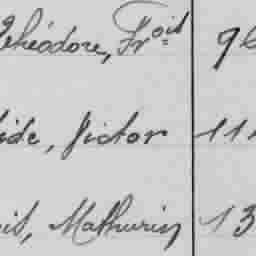 Théodore, Frois 96
ide, Victor 11
is, Mathurin 13